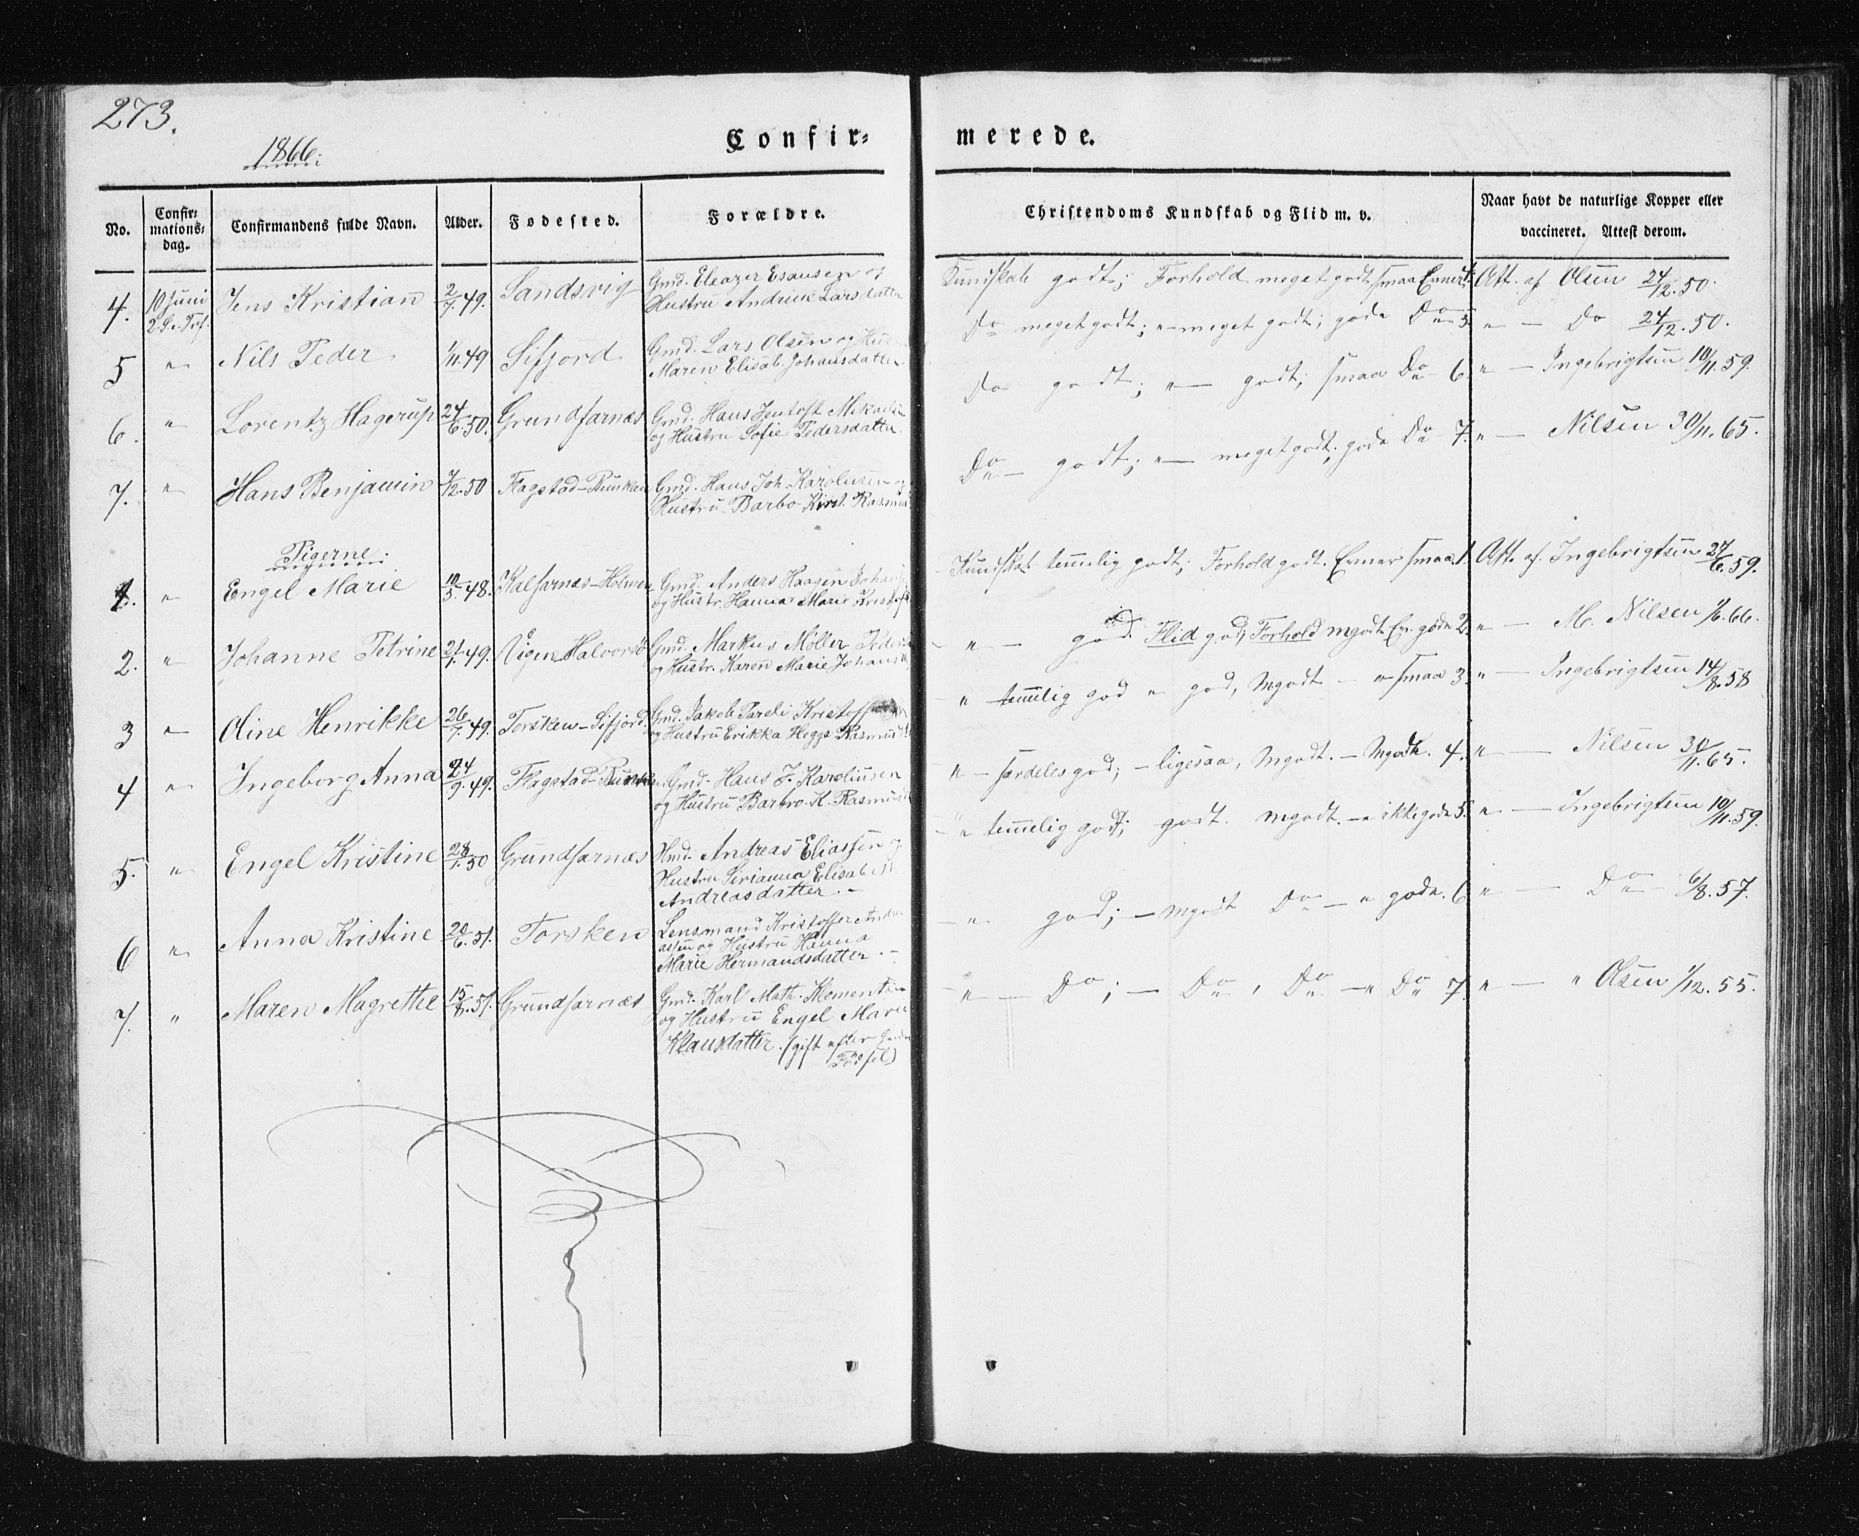 273.
1866.
Confir-
merede.
No.
Confir-
mations-
dag.
Confirmandens fulde Navn.
Alder.
Fødested.
Forældre.
Christendoms Kundskab og Flid m. v.
Naar havt de naturlige Kopper eller
vaccineret. Attest derom.
4. 10 Juni Jens Kristian 2/7.49. Sandsvig Gmd. Eleazer Esausen og
2. S. e. Tref. Hustru Andrine Larsdatter
Kundskab godt; Forhold meget godt, smaa Evner. 4. Att. af Olsen 24/12.50.
5 " Nils Peder 1/11.49 Sifjord Gmd. Lars Olsen og
Maren Elisab. Johansdatter
Do meget godt; " — meget godt; gode Do 5 " — Do 24/12.50.
6. " Lorentz Hagerup 24/6.50. Grundfarnæs Gmd. Hans Jentoft
og Hustru Sofie Pedersdatter
Do godt; " — godt; smaa Do 6 " — Ingebrigtsen 10/11.59.
7. " Hans Benjamin 7/12.50 Flagstad- Gmd. Hans Joh. Karolusen og
Hustru Barbo Kirst. Rasmus
Do godt; " — meget godt; gode Do 7. " — Nilsen 30/11.65.
Pigerne.
1. " Engel Marie 10/5.48. Kalfarnæs-Holmen Gmd. Anders Haagen
og Hustr. Hanna Marie
Kundskab temmelig godt; Forhold godt. Evner smaa. 1. Att. af Ingebrigtsen 27/6.59.
2. " Johanne Petrine 21/1.49. Gmd. Markus Möller
og Hustr. Karen Marie
" — god. Flid god, Forhold mgodt Ev. gode 2. " — M. Nilsen 1/6.66.
3 " Oline Henrikke 26/7.49. Torsken-Sifjord. Gmd. Jakob Pareli
og Hustru Erikka Hegge
" temmelig god " god, Mgodt — " smaa 3. " — Ingebrigtsen 14/8.58
4 " Ingeborg Anna 24/9.49. Flagstad- Gmd. Hans J. Karoliusen
og Hustru Barbro K. Rasmus
" — særdeles god; — ligesaa, Mgodt. — Mgode. 4. " — Nilsen 30/11.65.
5. " Engel Kristine 28/1.50 Grundfarnæs Hmd. Andreas Eliassen og
Hustru Sirianna Elisab.
Andreasdatter. —
" temmelig godt; godt. Mgodt. — " ikke gode 5. " — Ingebrigtsen 10/11.59.
6 " Anna Kristine 20/6.51. Torsken Lensmand Kristoffer
og Hustru Hanna
Marie Hermandsdatter. —
" god; — Mgodt Do — " gode. 6 " — Do 6/8.57.
7. " Maren Magrethe 15/8.51. Grundfarnæs Gmd. Karl Math. Klementsen
og Hustru Engel Marie
Klausdatter. (gift efter
Fødsel)
" — Do; — Do, Do — " Do 7. " — " Olsen 1/12.55.